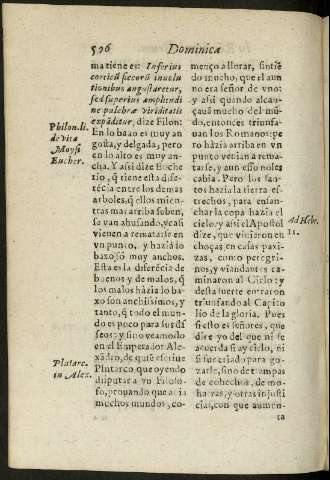 506 Dominica
ma tiene en: Inferius
corticũ siccorũ inuolu
tionibus angustaretur,
sed superius amplitudi
ne pulchræ viriditatis
expãditur, dize Filon:
En lo baxo es muy an
gosta, y delgada, pero
en lo alto es muy an-
cha. Y assi dize Euche
rio, q̃ tiene esta dife-
rẽcia entre los demas
arboles, q̃ ellos mien-
tras mas arriba suben,
se van ahusando, y casi
vienen a rematarse en
vn punto, y hazia lo
baxo sõ muy anchos.
Esta es la diferẽcia de
buenos y de malos, q̃
los malos hàzia lo ba-
xo son anchissimos, y
tanto, q̃ todo el mun-
do es poco para sus dẽ
seos: y sino veamoslo
en el Emperador Ale-
xãdro, de quiẽ escriue
Plutarco que oyendo
disputar a vn Filoso-
fo, prouando que auia
muchos mundos, co-
Philon. li.
de vita
Moysi
Eucher.
Plutarc.
in Alex.
mẽço a llorar, sintiẽ
do mucho, que el aun
no era señor de vno:
y assi quando alcan-
çauã mucho del mũ-
do, entonces triunfa-
uan los Romanos: pe
ro hàzia arriba en vn
punto venian a rema-
tarse, y aun esso no les
cabia. Pero los san-
tos hazia la tierra es
trechos, para ensan-
char la copa hazia el
cielo: y assi el Apostol
dize, que viuieron en
choças, en casas paxi-
zas, como peregri-
nos, y viandantes ca-
minaron al Cielo: y
desta suerte entraron
triunfando al Capito
lio de la gloria. Pues
si esto es señores, que
dire yo del que ni se
acuerda si ay cielo, ni
si fue criado para go-
zarle, sino de trampas
de cohechos, de mo-
hatras, y otras injusti
cias, con que aumen
ta
Ad Hebr.
11.